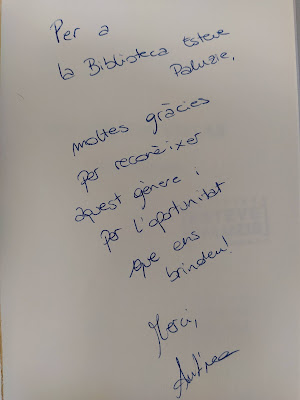 Per a
la Biblioteca Esteve
Paluzie,
moltes gràcies
per reconèixer
aquest gènere i
per l'oportunitat
que ens
brindeu!
Merci,